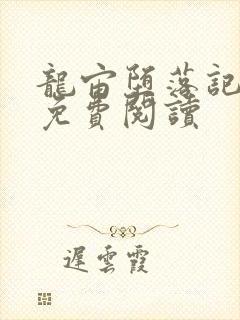 龍宙堕落記
免費閱讀
遲雲霞